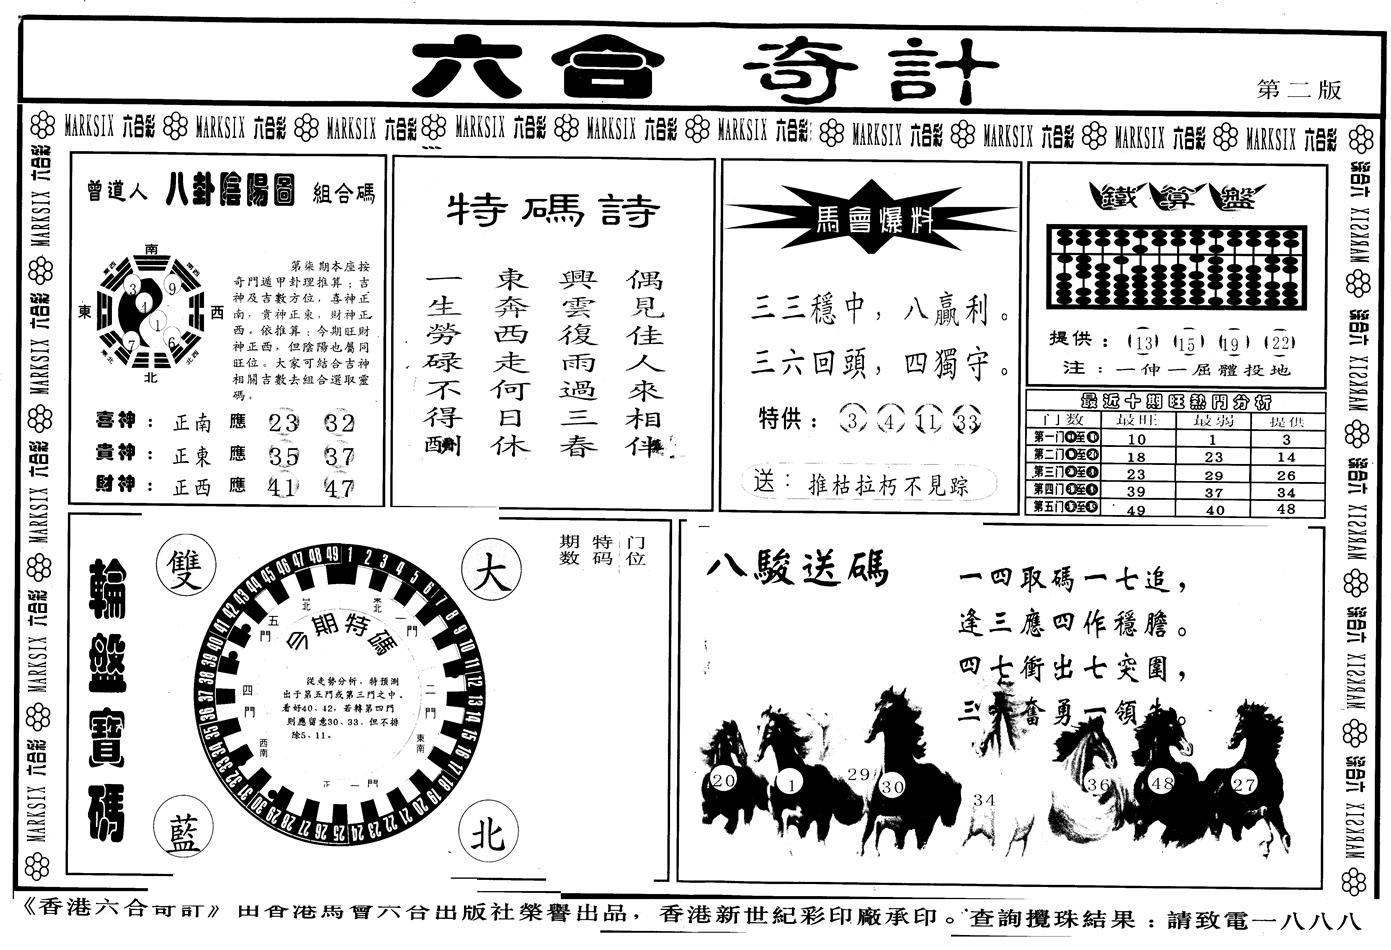 六合 奇計
第二版
MARKSIX 六合彩 MARKSIX 六合彩 MARKSIX 六合彩 MARKSIX 六合彩 MARKSIX 六合彩 MARKSIX 六合彩 MARKSIX 六合彩 MARKSIX 六合彩 MARKSIX 六合彩 MARKSIX 六合彩
MARKSIX 六合彩 MARKSIX 六合彩 MARKSIX 六合彩 MARKSIX 六合彩 MARKSIX 六合彩
MARKSIX 六合彩 MARKSIX 六合彩 MARKSIX 六合彩 MARKSIX 六合彩 MARKSIX 六合彩
曾道人 八卦陰陽圖 組合碼
南
東
西
北
3
9
4
1
7
6
第柒期本座按
奇門遁甲卦理推算；吉
神及吉數方位，喜神正
南，貴神正東，財神正
西。依推算；今期旺財
神正西，但陰陽也屬同
旺位。大家可結合吉神
相關吉數去組合選取靈
碼。
喜神： 正南 應 23 32
貴神： 正東 應 35 37
財神： 正西 應 41 47
特碼詩
偶見佳人來相伴
興雲復雨過三春
東奔西走何日休
一生勞碌不得酬
馬會爆料
三三穩中，八贏利。
三六回頭，四獨守。
特供： 3 4 11 33
送： 推枯拉朽不見踪
鐵算盤
提供：(13) (15) (19) (22)
注：一伸一屈體投地
最近十期旺熱門分析
门数 最旺 最弱 提供
第一门 至 10 1 3
第二门 至 18 23 14
第三门 至 23 29 26
第四门 至 39 37 34
第五门 至 49 40 48
輪盤寶碼
雙
大
藍
北
1 2 3 4 5 6 7 8 9 10 11 12 13 14 15 16 17 18 19 20 21 22 23 24 25 26 27 28 29 30 31 32 33 34 35 36 37 38 39 40 41 42 43 44 45 46 47 48 49
今期特碼
東北
一門
二門
東南
西南
四門
五門
從走勢分析，特預測
出于第五門或第三門之中。
看好40、42，若轉第四門
則應留意30、33，但不排
除5、11。
期数 特码 门位
八駿送碼
一四取碼一七追，
逢三應四作穩膽。
四七衝出七突圍，
三 奮勇一領 。
20
1
29
30
34
36
48
27
《香港六合奇計》由香港馬會六合出版社榮譽出品，香港新世紀彩印廠承印。查詢攪珠結果：請致電一八八八